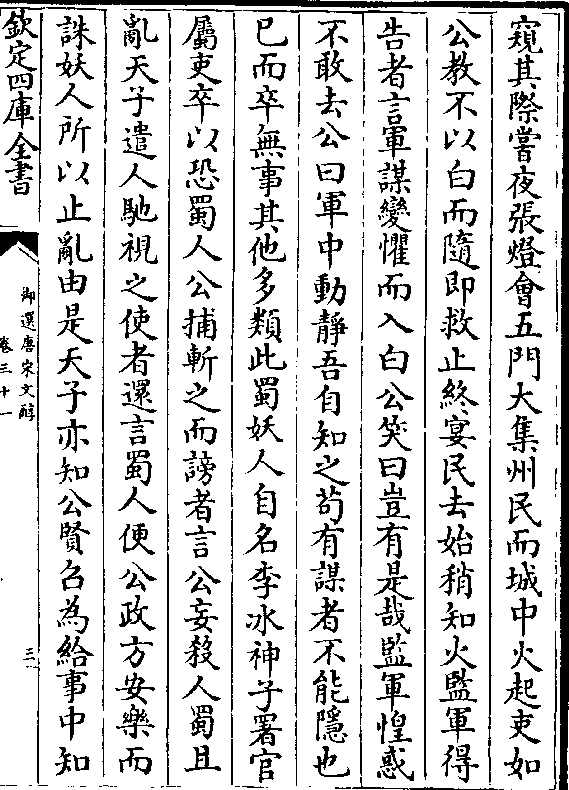 窺其際嘗夜張燈會五門大集州民而城中火起吏如
公教不以白而隨即救止終宴民去始稍知火監軍得
告者言軍謀變懼而入白公笑曰豈有是哉監軍惶惑
不敢去公曰軍中動靜吾自知之苟有謀者不能隱也
已而卒無事其他多類此蜀妖人自名李冰神子署官
屬吏卒以恐蜀人公捕斬之而謗者言公妄殺人蜀且
亂天子遣人馳視之使者還言蜀人便公政方安樂而
誅妖人所以止亂由是天子亦知公賢召為給事中知
欽定四庫全書
御選唐宋文醇
卷三十一
三